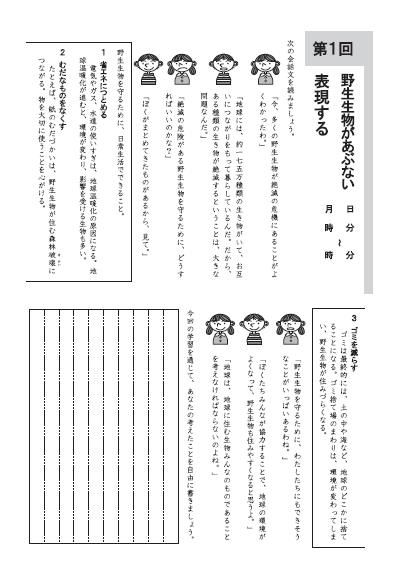 第1回
野生生物があぶない
表現する
月 日
時 分
~
時 分
次の会話文を読みましょう。
「今、多くの野生生物が絶滅の危機にあることがよ
くわかったわ。」
「地球には、約一七五万種類の生き物がいて、お互
いにつながりをもって暮らしているんだ。だから、
ある種類の生き物が絶滅するということは、大きな
問題なんだ。」
「絶滅の危険がある野生生物を守るために、どうす
ればいいのかな?」
「ぼくがまとめてきたものがあるから、見て。」
野生生物を守るために、日常生活でできること。
1 省エネにつとめる
電気やガス、水道の使いすぎは、地球温暖化の原因になる。地
球温暖化が進むと、環境が変わり、影響を受ける生物も多い。
2 むだなものをなくす
たとえば、紙のむだづかいは、野生生物が住む森林破壊に
つながる。物を大切に使うことを心がける。
3 ゴミを減らす
ゴミは最終的には、土の中や海など、地球のどこかに捨て
ることになる。ゴミ捨て場のまわりは、環境が変わってしま
い、野生生物が住みづらくなる。
「野生生物を守るために、わたしたちにもできそう
なことがいっぱいあるわね。」
「ぼくたちみんなが協力することで、地球の環境が
よくなって、野生生物も住みやすくなると思うよ。」
「地球は、地球に住む生物みんなのものであること
を考えなければならないのよね。」
今回の学習を通じて、あなたの考えたことを自由に書きましょう。